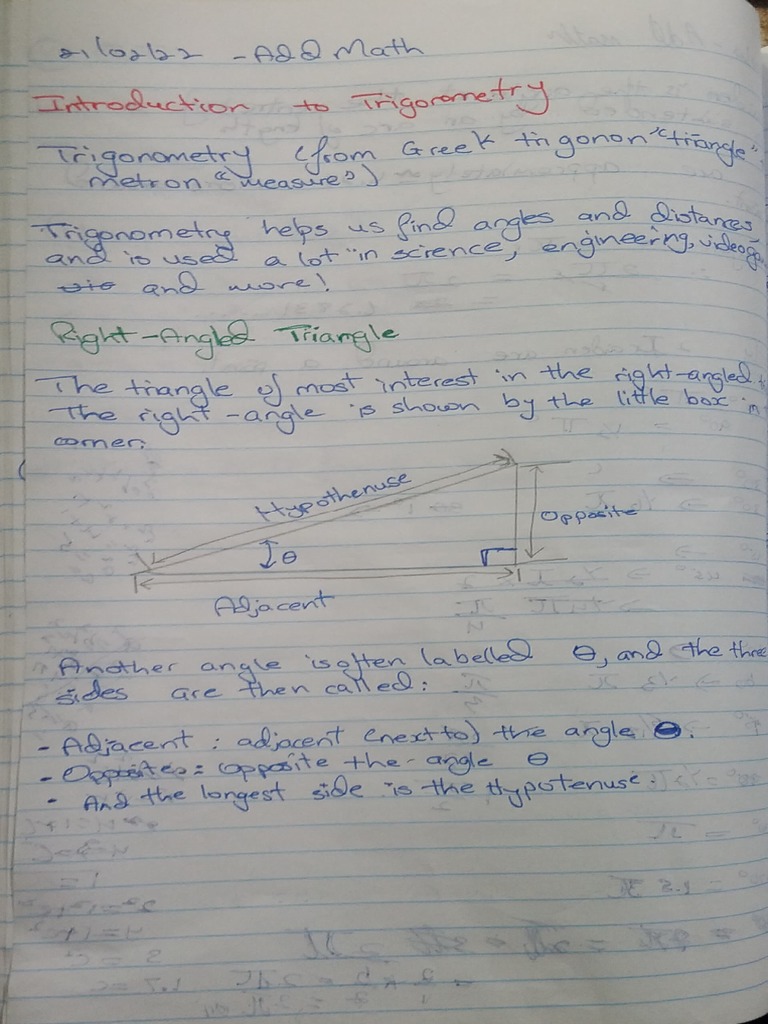 21/02/22 - Add Math
Introduction to Trigonometry
Trigonometry (from Greek trigonon "triangle"
metron "measure")
Trigonometry helps us find angles and distances,
and is used a lot in science, engineering, videoga
and more!
Right-Angled Triangle
The triangle of most interest in the right-angled
The right-angle is shown by the little box in
corner:
Hypothenuse
Opposite
θ
Adjacent
Another angle is often labelled θ, and the three
sides are then called:
- Adjacent: adjacent (next to) the angle θ.
- Opposites: opposite the angle θ
- And the longest side is the Hypotenuse.